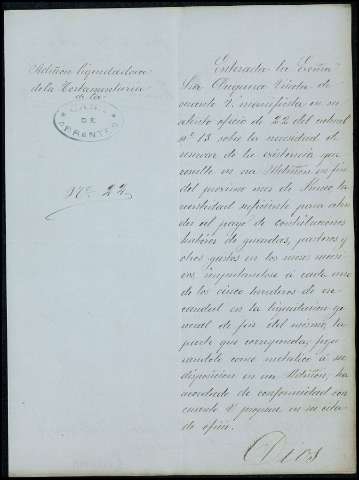 Admón liquidadora
de la Testamentaria
de la
CASA
DE
ARRANTES
Nº 22,
Enterada la Excma
Sra Duquesa Viuda de
cuanto V. manifiesta en su
atento oficio de 22 del actual
nº 13 sobre la necesidad de
de la existencia que
resulte en esa Admón en fin
del procsimo mes de Enero la
cantidad suficiente para aten
der al pago de contribuciones
haberes de guardas, pastores y
otros gastos en los meses suce
sivos imputandose á cada uno
de los cinco herederos de ese
caudal en la liquidacion ge
neral de fin del mismo, la
parte que corresponda, figu
randole como metalico á su
disposicion en esa Admón, ha
acordado de conformidad con
cuanto V. propone en su cita
do oficio.
Dios